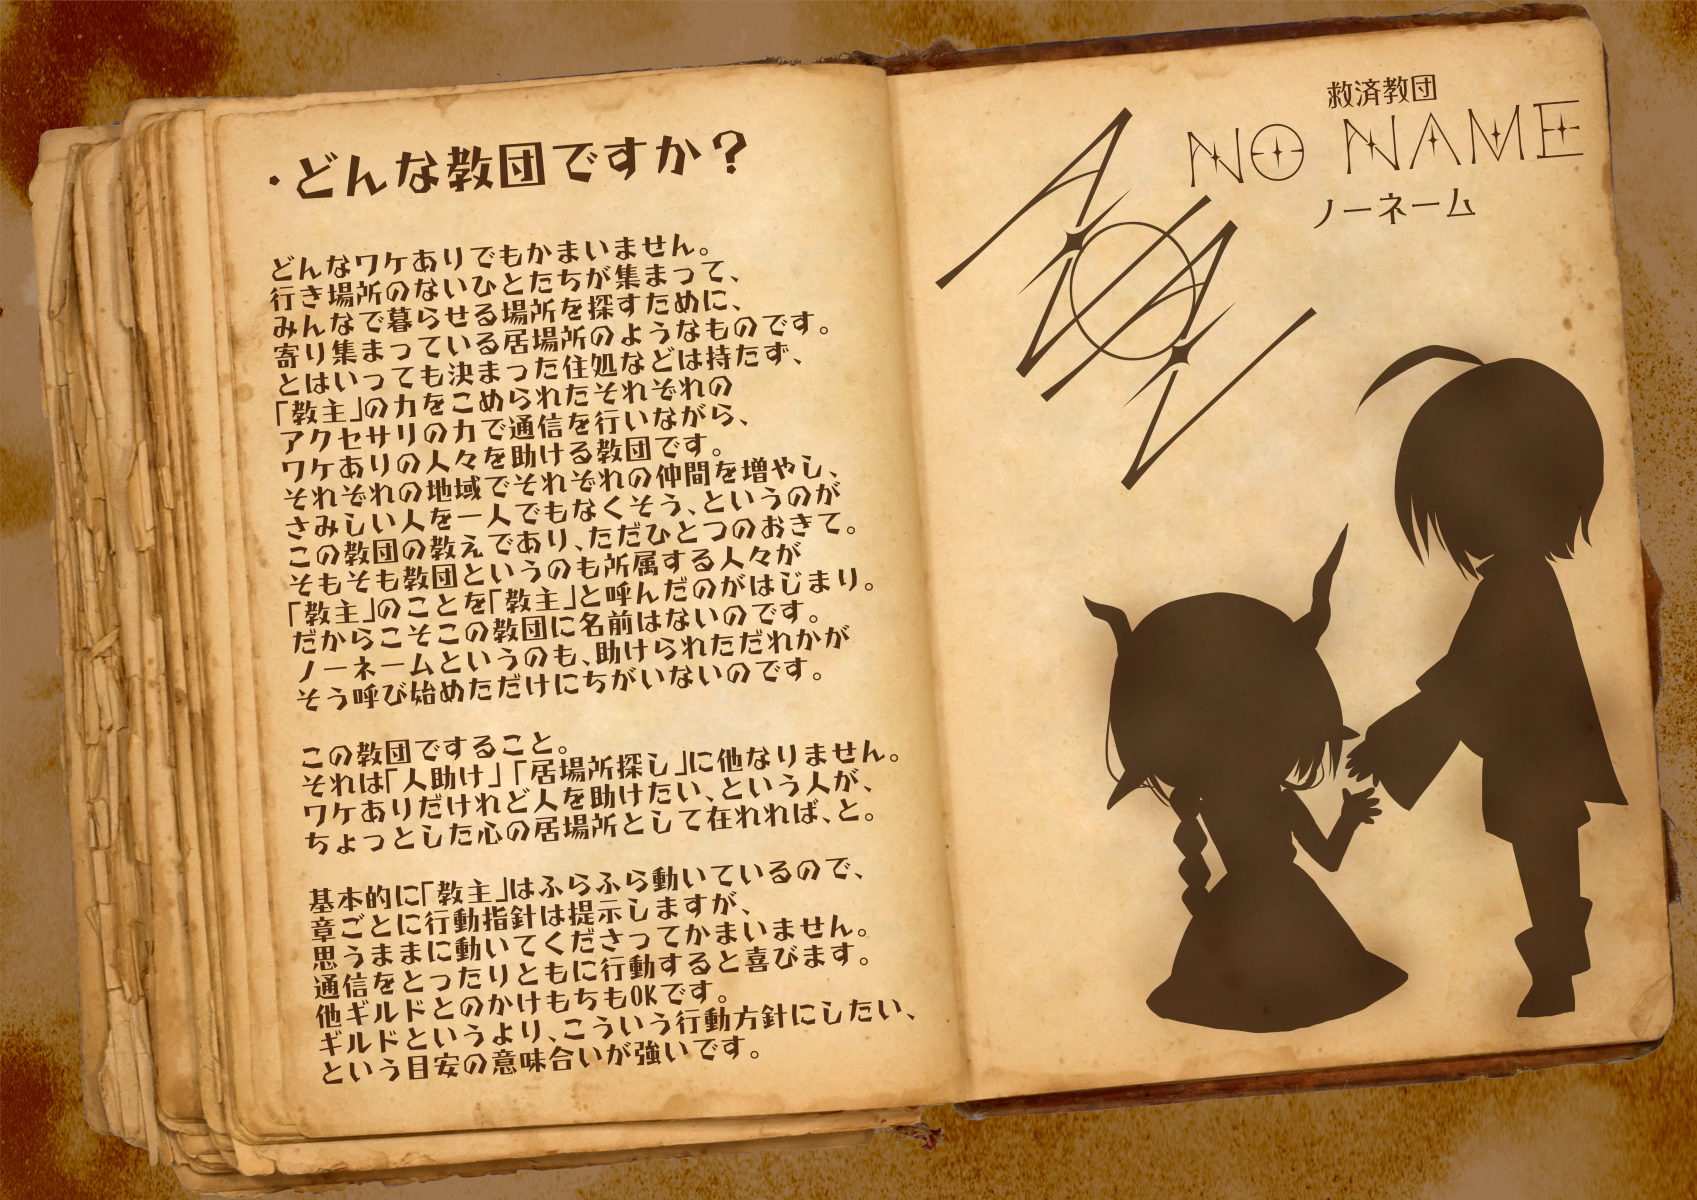 ・どんな教団ですか？
どんなワケありでもかまいません。
行き場所のないひとたちが集まって、
みんなで暮らせる場所を探すために、
寄り集まっている居場所のようなものです。
とはいっても決まった住処などは持たず、
「教主」の力をこめられたそれぞれの
アクセサリの力で通信を行いながら、
ワケありの人々を助ける教団です。
それぞれの地域でそれぞれの仲間を増やし、
さみしい人を一人でもなくそう、というのが
この教団の教えであり、ただひとつのおきて。
そもそも教団というのも所属する人々が
「教主」のことを「教主」と呼んだのがはじまり。
だからこそこの教団に名前はないのです。
ノーネームというのも、助けられただれかが
そう呼び始めただけにちがいないのです。
この教団ですること。
それは「人助け」「居場所探し」に他なりません。
ワケありだけれど人を助けたい、という人が、
ちょっとした心の居場所として在れれば、と。
基本的に「教主」はふらふら動いているので、
章ごとに行動指針は提示しますが、
思うままに動いてくださってかまいません。
通信をとったりともに行動すると喜びます。
他ギルドとのかけもちもOKです。
ギルドというより、こういう行動方針にしたい、
という目安の意味合いが強いです。
救済教団
NO NAME
ノーネーム